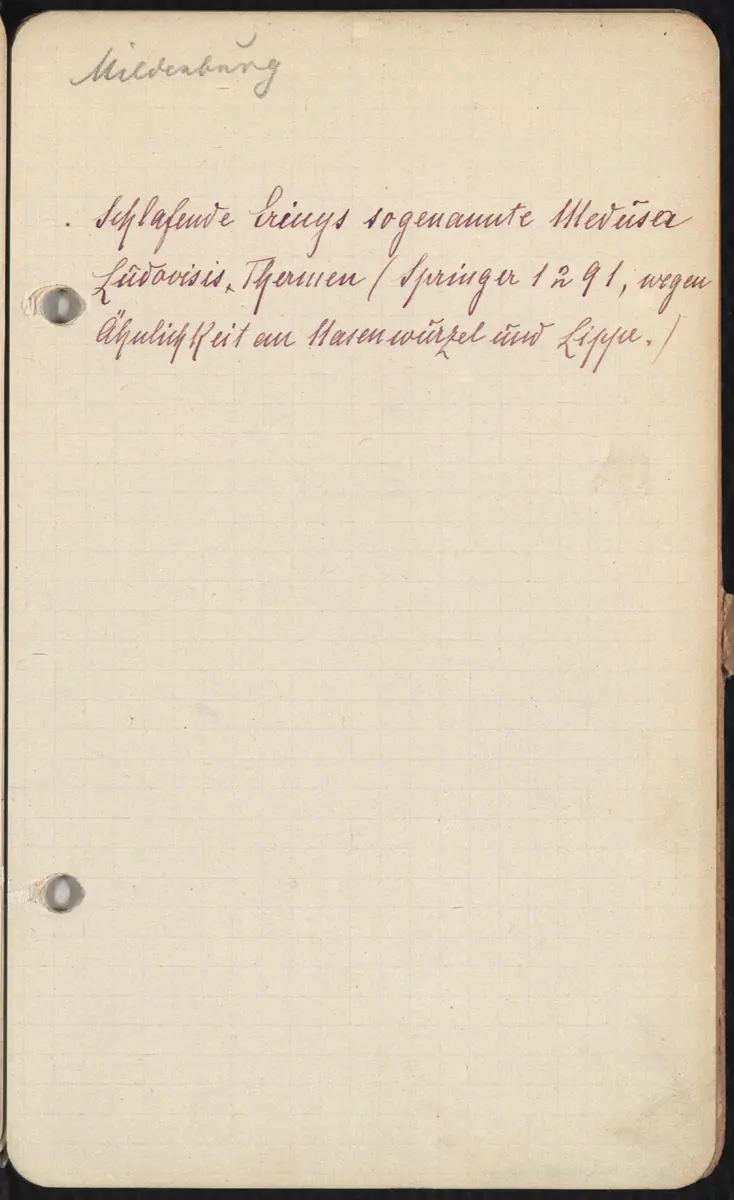 Mildenburg
Schlafende Erinys sogenannte Medusa
Ludovisis, Thermen (Springer 1 2 9 1, wegen
Ähnlichkeit an Nasenwurzel und Lippe.)